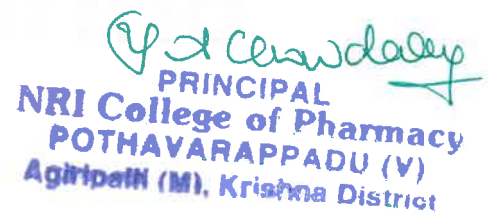 PRINCIPAL
NRI College of Pharmacy
POTHAVARAPPADU (V)
Agiripalli (M), Krishna District